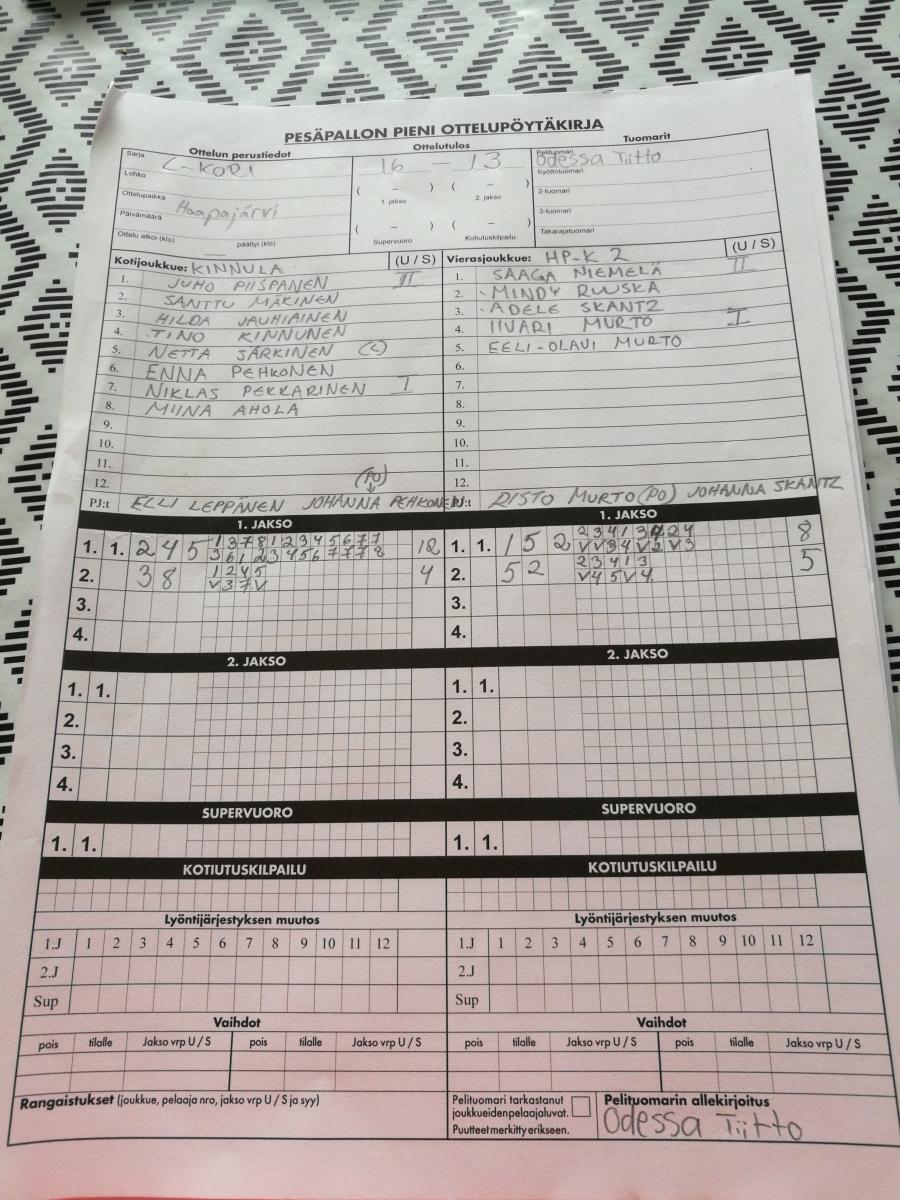 PESÄPALLON PIENI OTTELUPÖYTÄKIRJA
Ottelun perustiedot Ottelutulos Tuomarit
Sarja C-KORI 16 – 13 Pelituomari Odessa Tiitto
Lohko ( – ) ( – ) Syöttötuomari
1. jakso 2. jakso 2-tuomari
Ottelupaikka Haapajärvi
Päivämäärä ( – ) ( – ) 3-tuomari
Ottelu alkoi (klo) päättyi (klo) Supervuoro Kotiutuskilpailu Takarajatuomari
Kotijoukkue: KINNULA (U / S) Vierasjoukkue: HP-K 2 (U / S)
1. JUHO PIISPANEN II 1. SAAGA NIEMELÄ II
2. SANTTU MÄKINEN 2. MINDY RUUSKA
3. HILDA JAUHIAINEN 3. ADELE SKANTZ
4. TINO KINNUNEN 4. IIVARI MURTO I
5. NETTA SÄRKINEN (C) 5. EELI-OLAVI MURTO
6. ENNA PEHKONEN 6.
7. NIKLAS PEKKARINEN I 7.
8. MIINA AHOLA 8.
9. 9.
10. 10.
11. 11.
12. (PO) 12.
PJ:t ELLI LEPPÄNEN JOHANNA PEHKONEN PJ:t RISTO MURTO (PO) JOHANNA SKANTZ
1. JAKSO 1. JAKSO
1 3 7 8 1 2 3 4 5 6 7 7
1. 1. 2 4 5 12 1. 1. 1 5 2 8
3 6 1 2 3 4 5 6 7 7 7 8 V V 3 4 V 2 V 3
1 2 4 5 2 3 4 1 3
2. 3 8 4 2. 5 2 5
V 3 7 V V 4 5 V 4
3. 3.
4. 4.
2. JAKSO 2. JAKSO
1. 1. 1. 1.
2. 2.
3. 3.
4. 4.
SUPERVUORO SUPERVUORO
1. 1. 1. 1.
KOTIUTUSKILPAILU KOTIUTUSKILPAILU
Lyöntijärjestyksen muutos Lyöntijärjestyksen muutos
1.J 1 2 3 4 5 6 7 8 9 10 11 12 1.J 1 2 3 4 5 6 7 8 9 10 11 12
2.J 2.J
Sup Sup
Vaihdot Vaihdot
pois tilalle Jakso vrp U / S pois tilalle Jakso vrp U / S pois tilalle Jakso vrp U / S pois tilalle Jakso vrp U / S
Rangaistukset (joukkue, pelaaja nro, jakso vrp U / S ja syy) Pelituomari tarkastanut Pelituomarin allekirjoitus
joukkueidenpelaajaluvat. Odessa Tiitto
Puutteet merkitty erikseen.